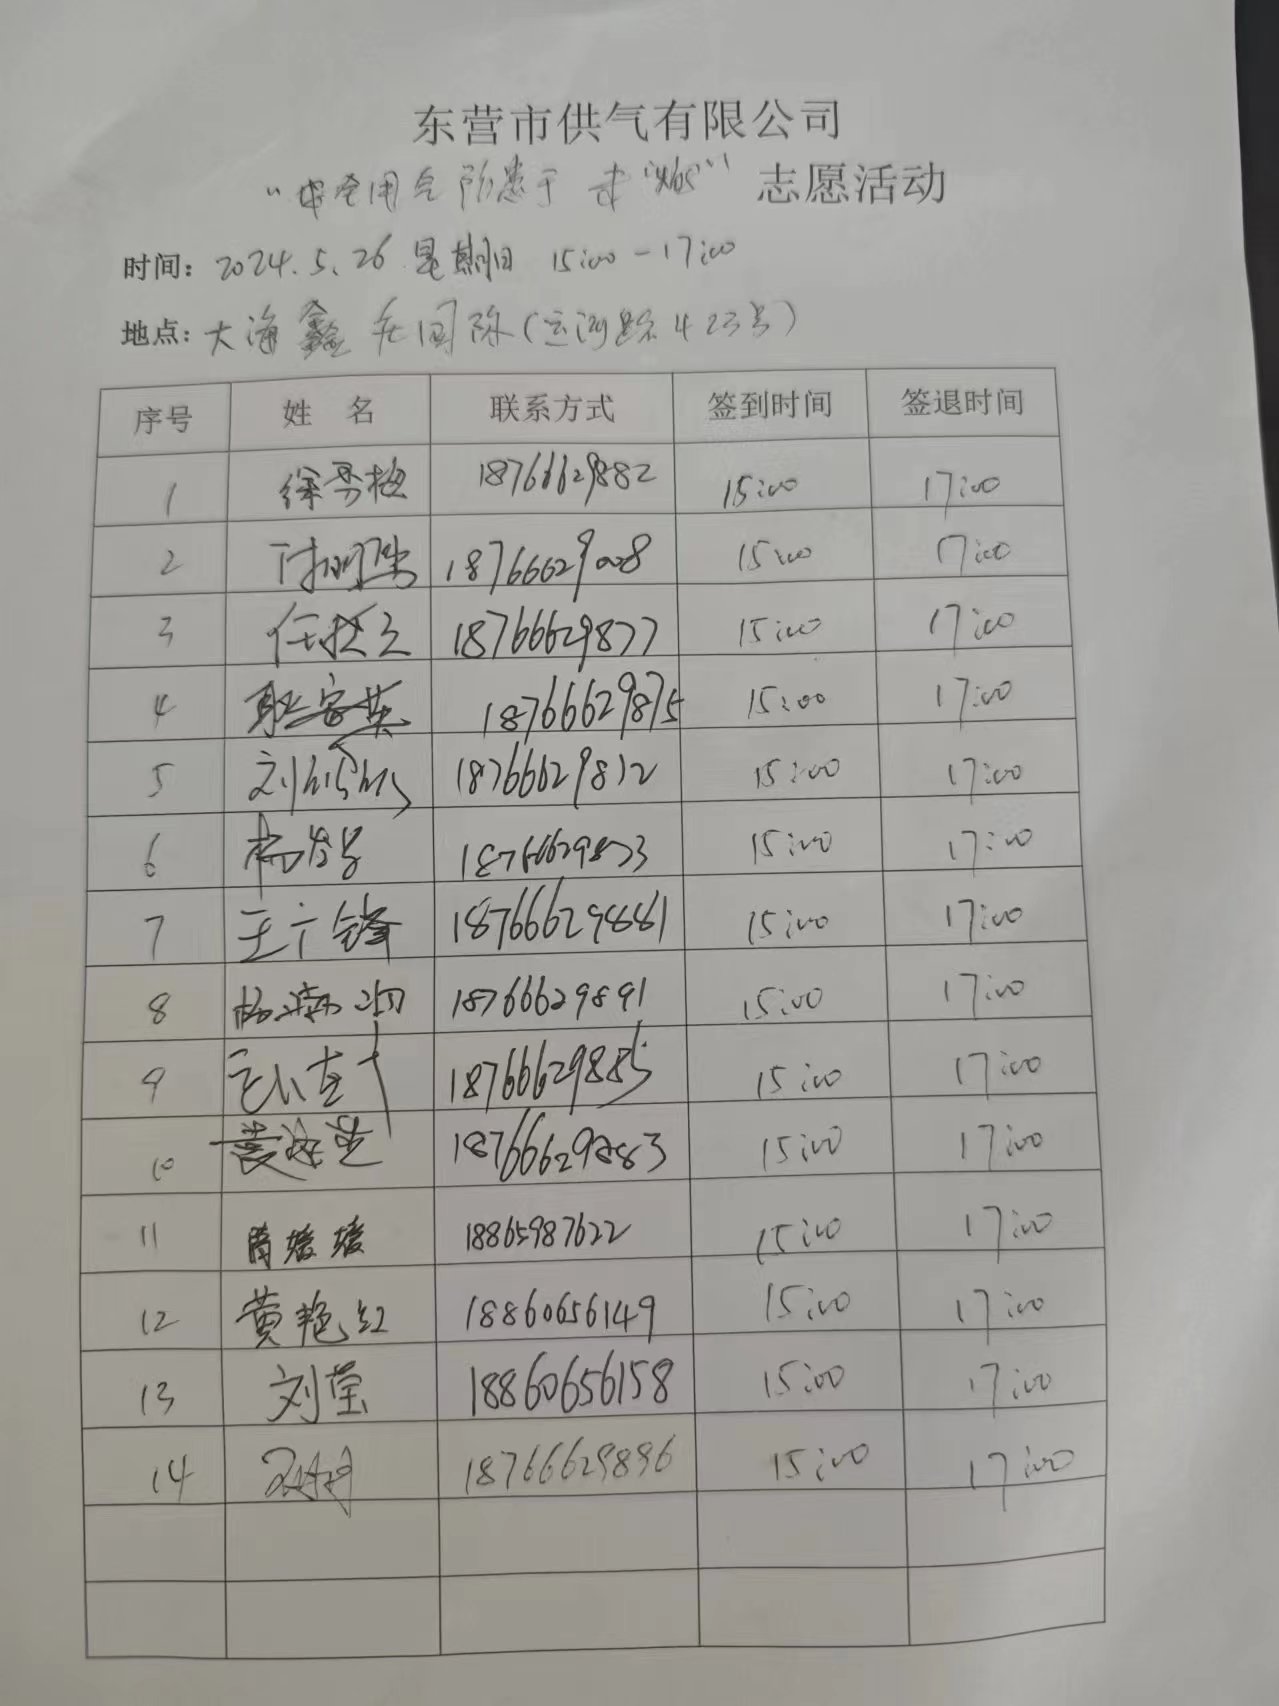 东营市供气有限公司
“安全用气 防患于 未“燃”” 志愿活动
时间: 2024.5.26 星期日 15:00-17:00
地点: 大海鑫 国际(运河路423号)
序号 姓 名 联系方式 签到时间 签退时间
1 徐秀梅 18766629882 15:00 17:00
2 18766629008 15:00 17:00
3 18766629877 15:00 17:00
4 18766629875 15:00 17:00
5 18766629872 15:00 17:00
6 18766629873 15:00 17:00
7 王广锋 18766629881 15:00 17:00
8 18766629891 15:00 17:00
9 18766629885 15:00 17:00
10 18766629883 15:00 17:00
11 肖媛媛 18865987622 15:00 17:00
12 黄艳红 18860656149 15:00 17:00
13 刘莹 18860656158 15:00 17:00
14 18766629896 15:00 17:00